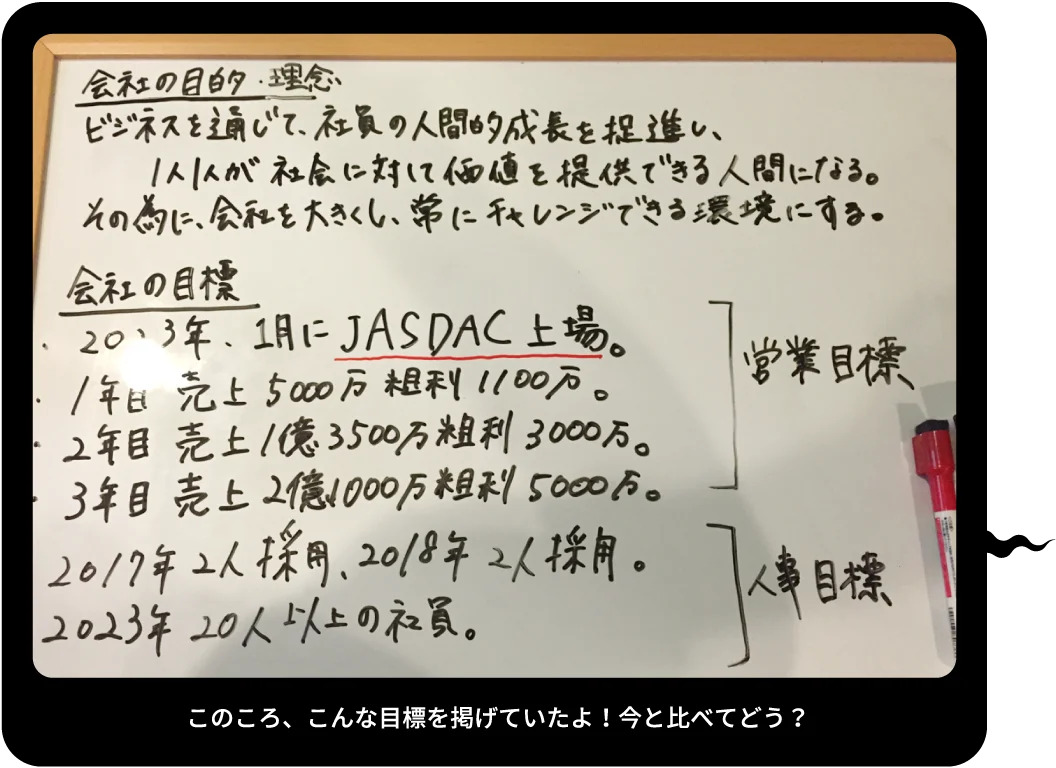 会社の目的・理念
ビジネスを通じて、社員の人間的成長を捉進し、
1人1人が社会に対して価値を提供できる人間になる。
その為に、会社を大きくし、常にチャレンジできる環境にする。
会社の目標
・2023年、1月にJASDAC上場。
・1年目 売上5000万 粗利1100万。
・2年目 売上1億3500万粗利3000万。
・3年目 売上2億1000万粗利5000万。
営業目標
2017年 2人採用、2018年 2人採用。
2023年 20人以上の社員。
人事目標
このころ、こんな目標を掲げていたよ！今と比べてどう？